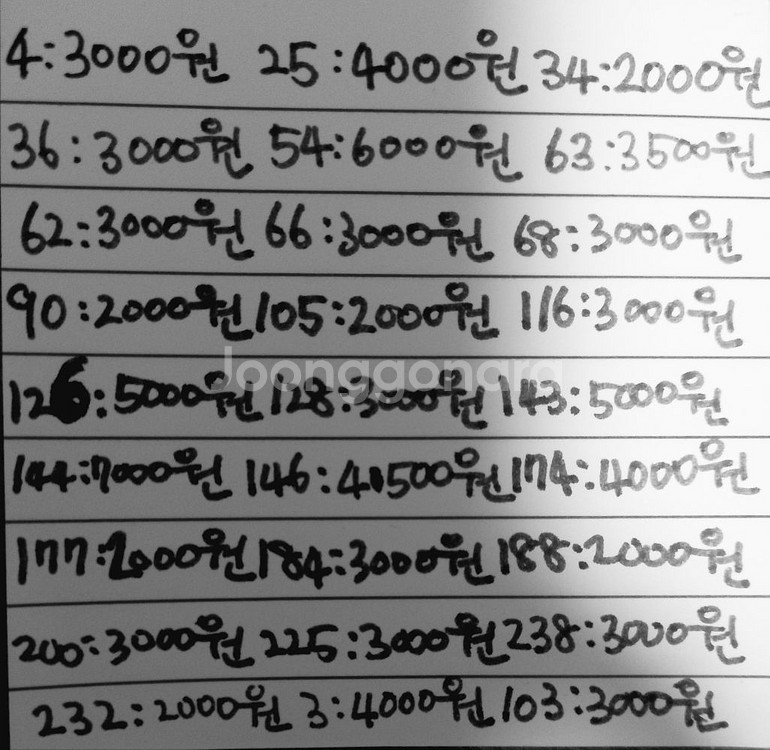 4:3000원 25:4000원 34:2000원
36:3000원 54:6000원 63:3500원
62:3000원 66:3000원 68:3000원
90:2000원 105:2000원 116:3000원
Joonggonara
126:5000원 128:3000원 143:5000원
144:7000원 146:4,500원 174:4000원
177:2000원 184:3000원 188:2000원
200:3000원 225:3000원 238:3000원
232:2000원 3:4000원 103:3000원